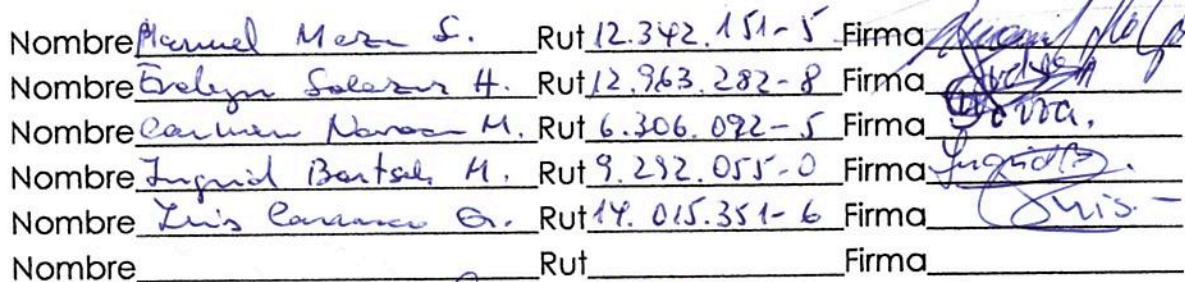 Nombre Manuel Meza S. Rut 12.342.151-5 Firma
Nombre Evelyn Salazar H. Rut 12.963.282-8 Firma
Nombre Carmen M. Rut 6.306.092-5 Firma
Nombre Ingrid Bartsch H. Rut 9.292.055-0 Firma Ingrid B.
Nombre Luis Carrasco G. Rut 14.015.351-6 Firma Luis.-
Nombre Rut Firma